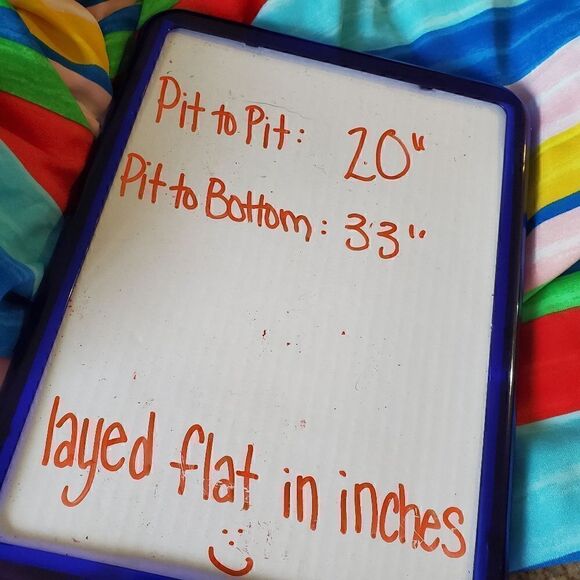 Pit to Pit: 20"
Pit to Bottom: 33"
layed flat in inches